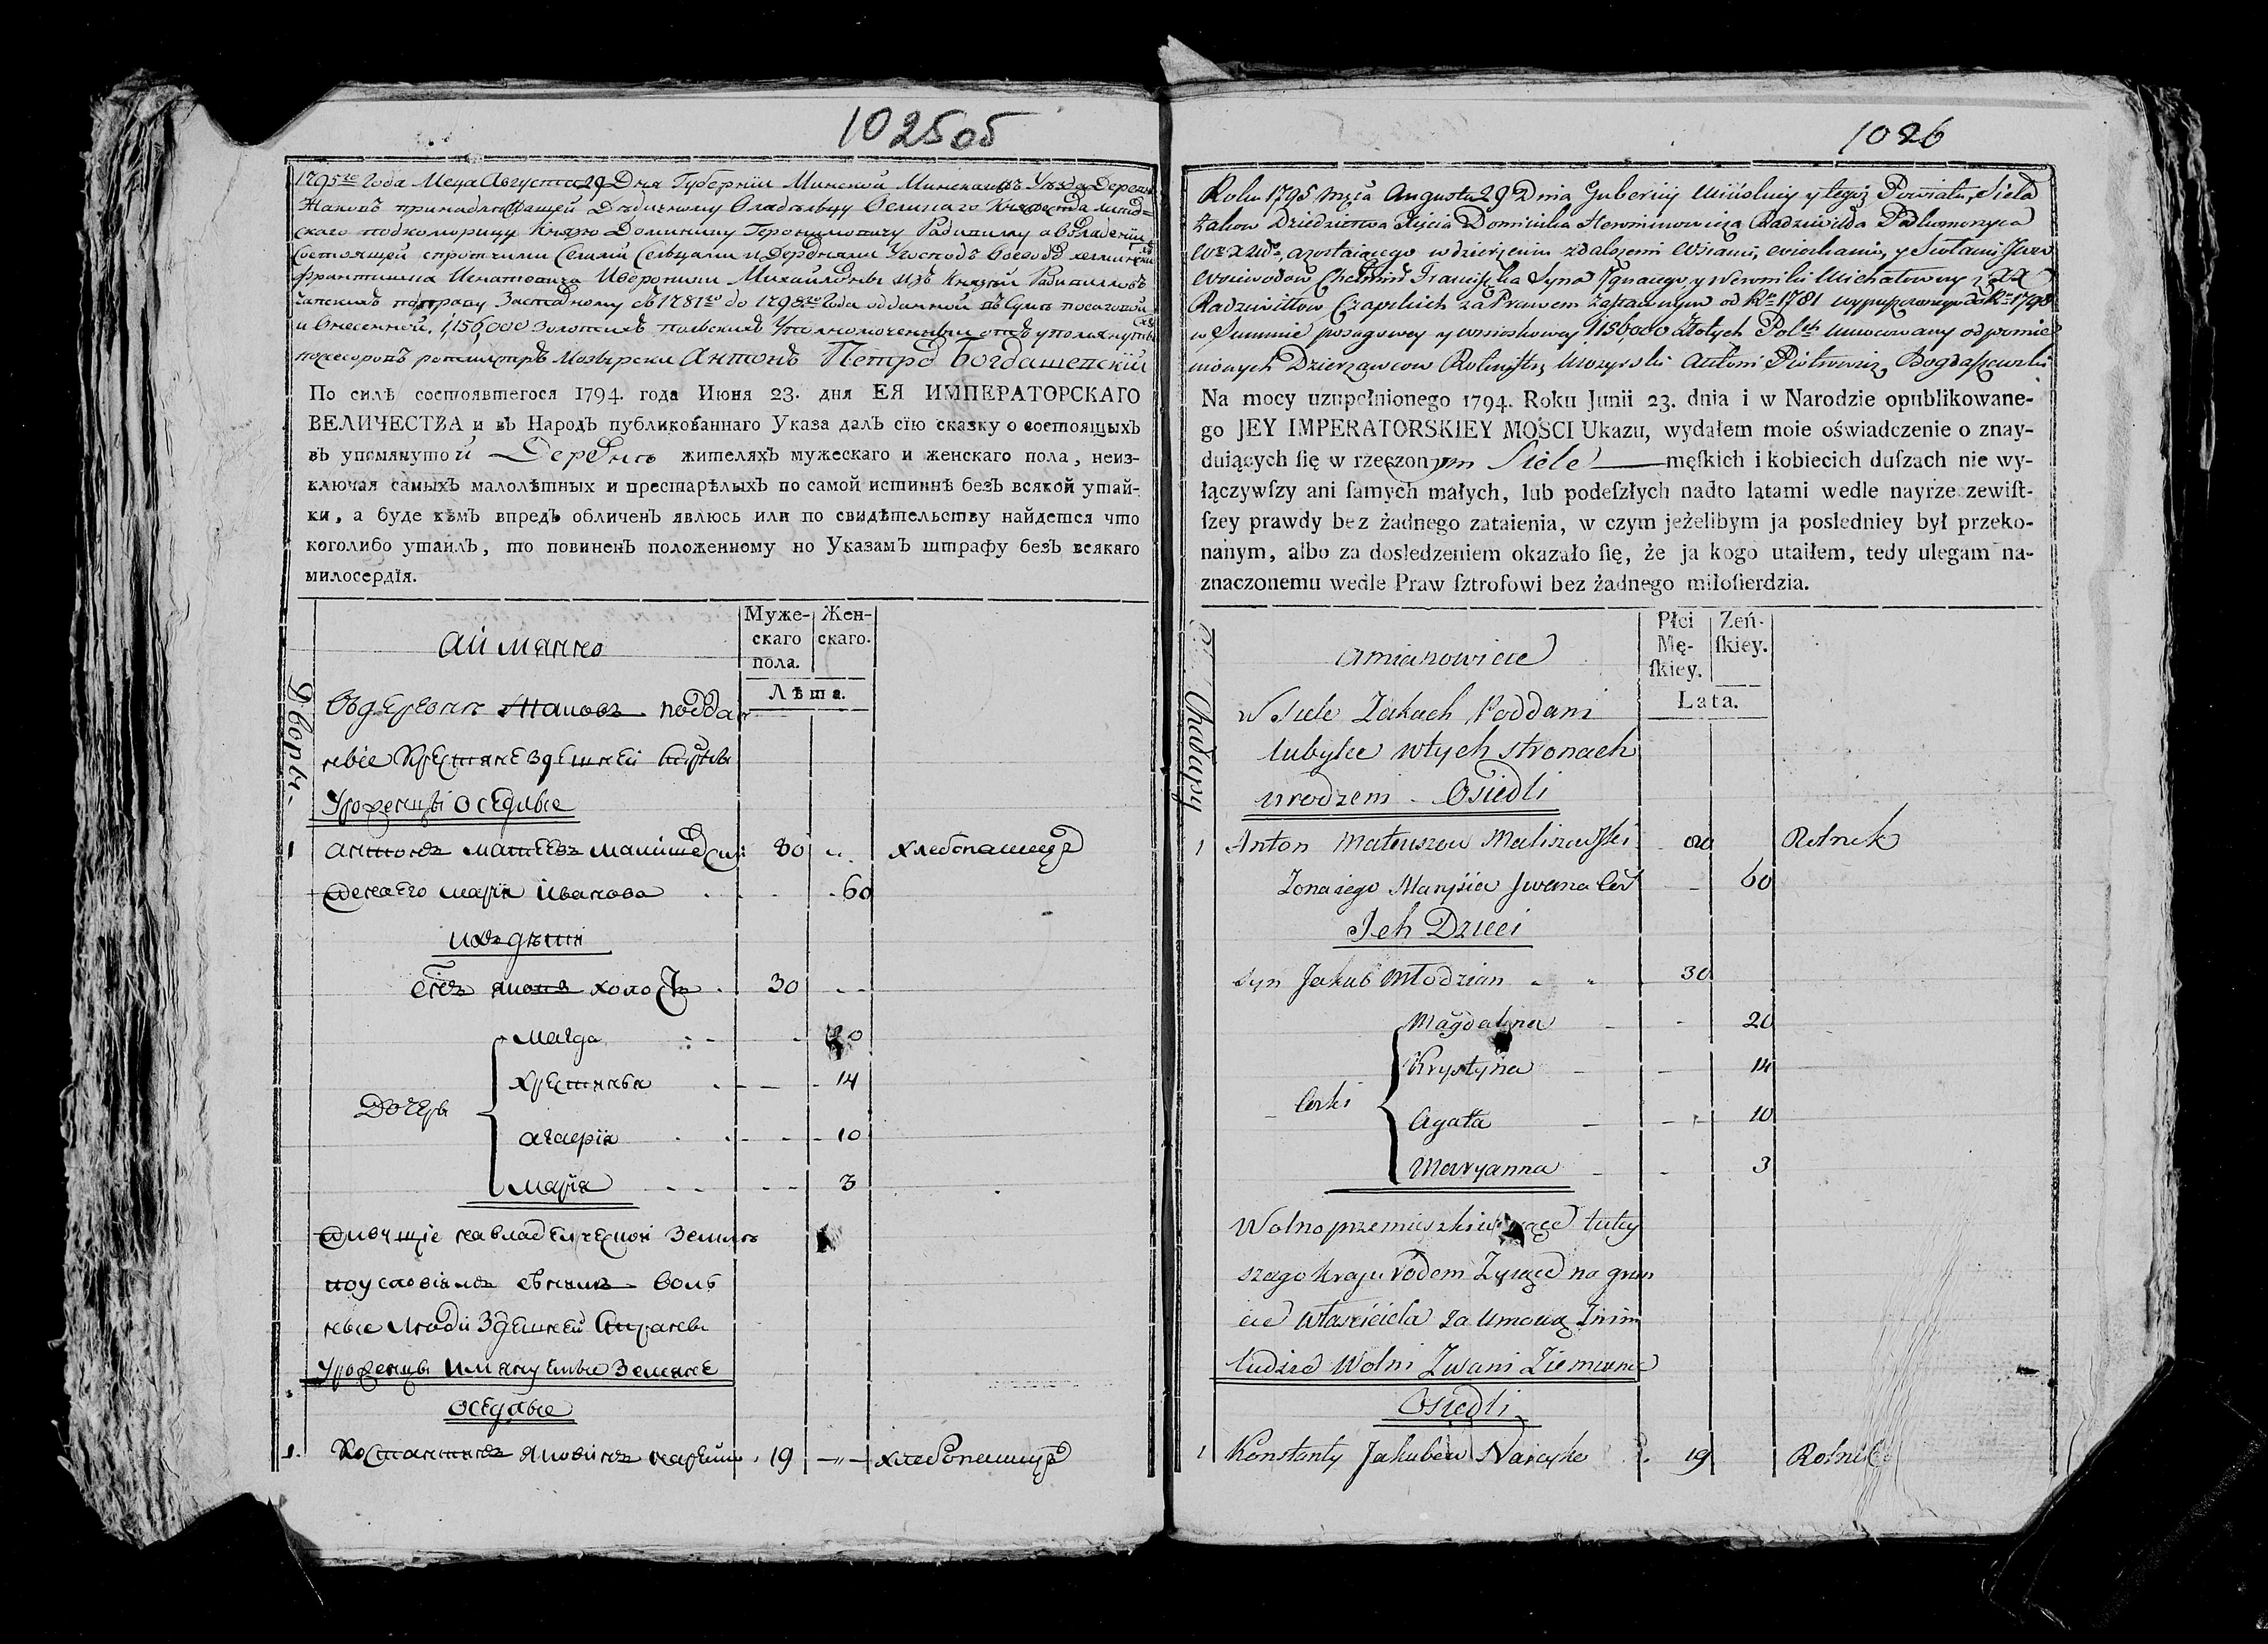 102505
1795го Года Меца Августа 29 Дня Губернїи Минской Минскаго Уѣзда Деревн
Жаковъ принадлежащей Дѣдичному Владѣльцу Великаго Княжства Литов-
скаго подкоморицу Князю Доминику Геронимовичу Радивилу а во владенїи
Состоящей спротчими Селами Сельцами и Деревнями Угосподъ Воеводъ
Францишка Игнатовича Иверонии Михайловны изъ Князей Радивиловъ
Чапскихъ по праву Заставному об 1781го до 1798го Года отданной въ Сумѣ посаговой
и Внесенной, 1,156,000 Золотихъ польскихъ Уполномоченный отъ упомянутыхъ
посесоровъ ротмистръ Мозырски Антонъ Петров Богдашевский
По силѣ состоявшегося 1794. года Июня 23. дня ЕЯ ИМПЕРАТОРСКАГО
ВЕЛИЧЕСТВА и въ Народъ публикованнаго Указа далъ сїю сказку о состоящыхъ
въ упомянутой Деревнѣ жителяхъ мужескаго и женскаго пола, неиз-
ключая самыхъ малолѣтныхъ и престарѣлыхъ по самой истиннѣ безъ всякой утай-
ки, а буде кѣмъ впредь обличенъ явлюсь или по свидѣтельству найдется что
коголибо утаилъ, то повиненъ положенному по Указамъ штрафу безъ всякаго
милосердїя.
Дворы.
Аймянно
Муже-
скаго
пола.
Жен-
скаго.
Лѣта.
Въдеревни Жаковъ поддан
ные Крестяне здешней
Уроженцы оседлые
1 Антонъ Матеевъ Малишевски 80 хлебопашецъ
жена его Марїя Иванова 60
ихъ дѣти
Сынъ Яковъ холостъ 30
Дочерь
Магда 20
Хрестина 14
Агафїя 10
Марїя 3
живущїе на владелческой земли
поусловїямъ съ нимъ воль
ные люди здешней
Уроженцы имянуемые Земяне
оседлые
1. Костантинъ Яковъ 19 хлебопашецъ
1026
Roku 1795 męca Augusta 29 Dnia Gubernij Mińskiej y tegoż Powiatu, Sieła
Żakow Dziedzictwa Xięcia Dominika Hieronimowicza Radziwiłła Podkomorzyca
W°. X. Lit°. zostaiącego w dzierżeniu z dalszemi Wsiami, y Siołami
Woiewodow Franciszka Syna Ignacego y Weroniki Michałowny z XX
Radziwiłłow Czapskich za Prawem Zastawnym od Ru 1781 do Ru 1798
w Summie posagowey y wnioskowey 1156,000 Złotych Polch Umocowany od pomie
nionych Dzierzawcow Rotmistrz Mozyrski Antoni Piotrowicz Bogdaszewski
Na mocy uzupełnionego 1794. Roku Junii 23. dnia i w Narodzie opublikowane-
go JEY IMPERATORSKIEY MOŚCI Ukazu, wydałem moie oświadczenie o znay-
duiących ſię w rzeczonym Siele męſkich i kobiecich duſzach nie wy-
łączywſzy ani ſamych małych, lub podeſzłych nadto latami wedle nayrzeczewiſt-
ſzey prawdy bez żadnego zataienia, w czym jeżelibym ja posledniey był przeko-
nanym, albo za dosledzeniem okazało ſię, że ja kogo utaiłem, tedy ulegam na-
znaczonemu wedle Praw ſztrofowi bez żadnego miłoſierdzia.
Chałupy
a mianowicie
Płci
Mę-
ſkiey.
Żeń-
ſkiey.
Lata.
w Siele Żakach Poddani
tubylce w tych stronach
urodzeni Osiedli
1 Anton Mateuszow Maliszewski 80 Rolnik
Żona iego Marysia Jwana Cor 60
Jch Dzieci
syn Jakub Młodzian 30
Corki
Magdalena 20
Krystyna 14
Agata 10
Maryanna 3
Wolno przemieszkiwaiące tutey
szego kraju Rodem Zyiące na grun
cie Właściciela za Umową z nim
ludzie Wolni Zwani Ziemianie
Osiedli
1 Konstanty Jakubow Narcyko 19 Rolnik